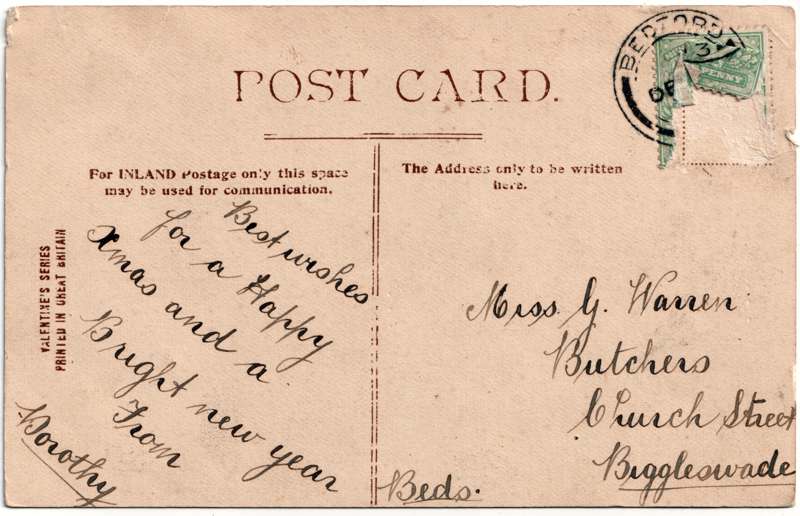 POST CARD.
For INLAND Postage only this space
may be used for communication.
The Address only to be written
here.
VALENTINE'S SERIES
PRINTED IN GREAT BRITAIN
BEDFORD
DE
PENNY
Best wishes
for a Happy
Xmas and a
Bright new year
From
Dorothy
Miss G. Warren
Butchers
Church Street
Biggleswade
Beds.